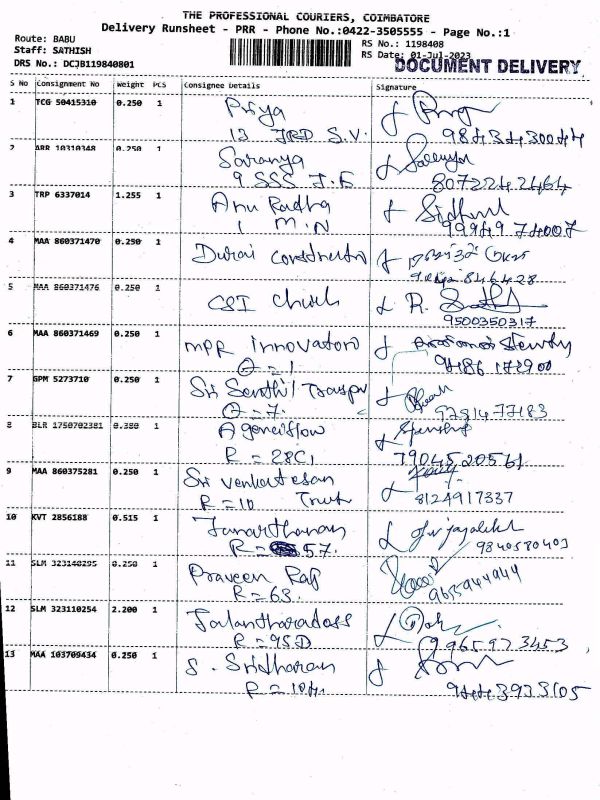 THE PROFESSIONAL COURIERS, COIMBATORE
Delivery Runsheet - PRR - Phone No.:0422-3505555 - Page No.:1
Route: BABU
RS No.: 1198408
Staff: SATHISH
RS Date: 01-Jul-2023
DRS No.: DCJB119840801
DOCUMENT DELIVERY
S No Consignment No Weight PCS Consignee Details Signature
1 TCG 50415310 0.250 1 Priya
13 JRD S.V.
2 ARR 10310348 0.250 1 Saranya
9 SSS J.E 8072242464
3 TRP 6337014 1.255 1 Anu Radha
1 M.N 9994974007
4 MAA 860371470 0.250 1 Durai
5 MAA 860371476 0.250 1 CSI Church R.
9500350317
6 MAA 860371469 0.250 1 MPR Innovation
7 GPM 5273710 0.250 1 Sri Senthil
=7. 9751477183
8 BLR 1750702381 0.380 1
R = 28C1 7904520561
9 MAA 860375281 0.250 1 Sri Venkatesan
R=10 Trust 8124917337
10 KVT 2856188 0.515 1 Janarthanan
R= 57. 9840580403
11 SLM 323140295 0.250 1 Praveen Raj
R=63. 9655944944
12 SLM 323110254 2.200 1 Jalantharadass
R=95D 9965973453
13 MAA 103709434 0.250 1 S. Sridharan